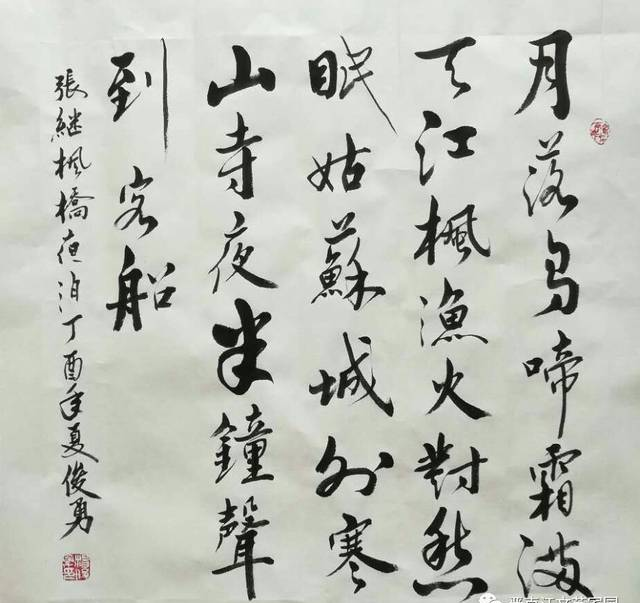 月落烏啼霜滿
天江楓漁火對愁
眠姑蘇城外寒
山寺夜半鐘聲
到客船
張継楓橋夜泊丁酉年夏俊勇